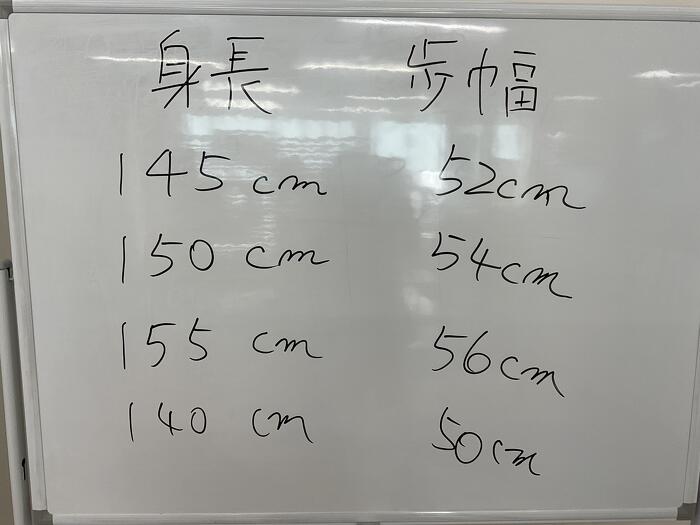 身長 歩幅
145cm 52cm
150cm 54cm
155cm 56cm
140cm 50cm